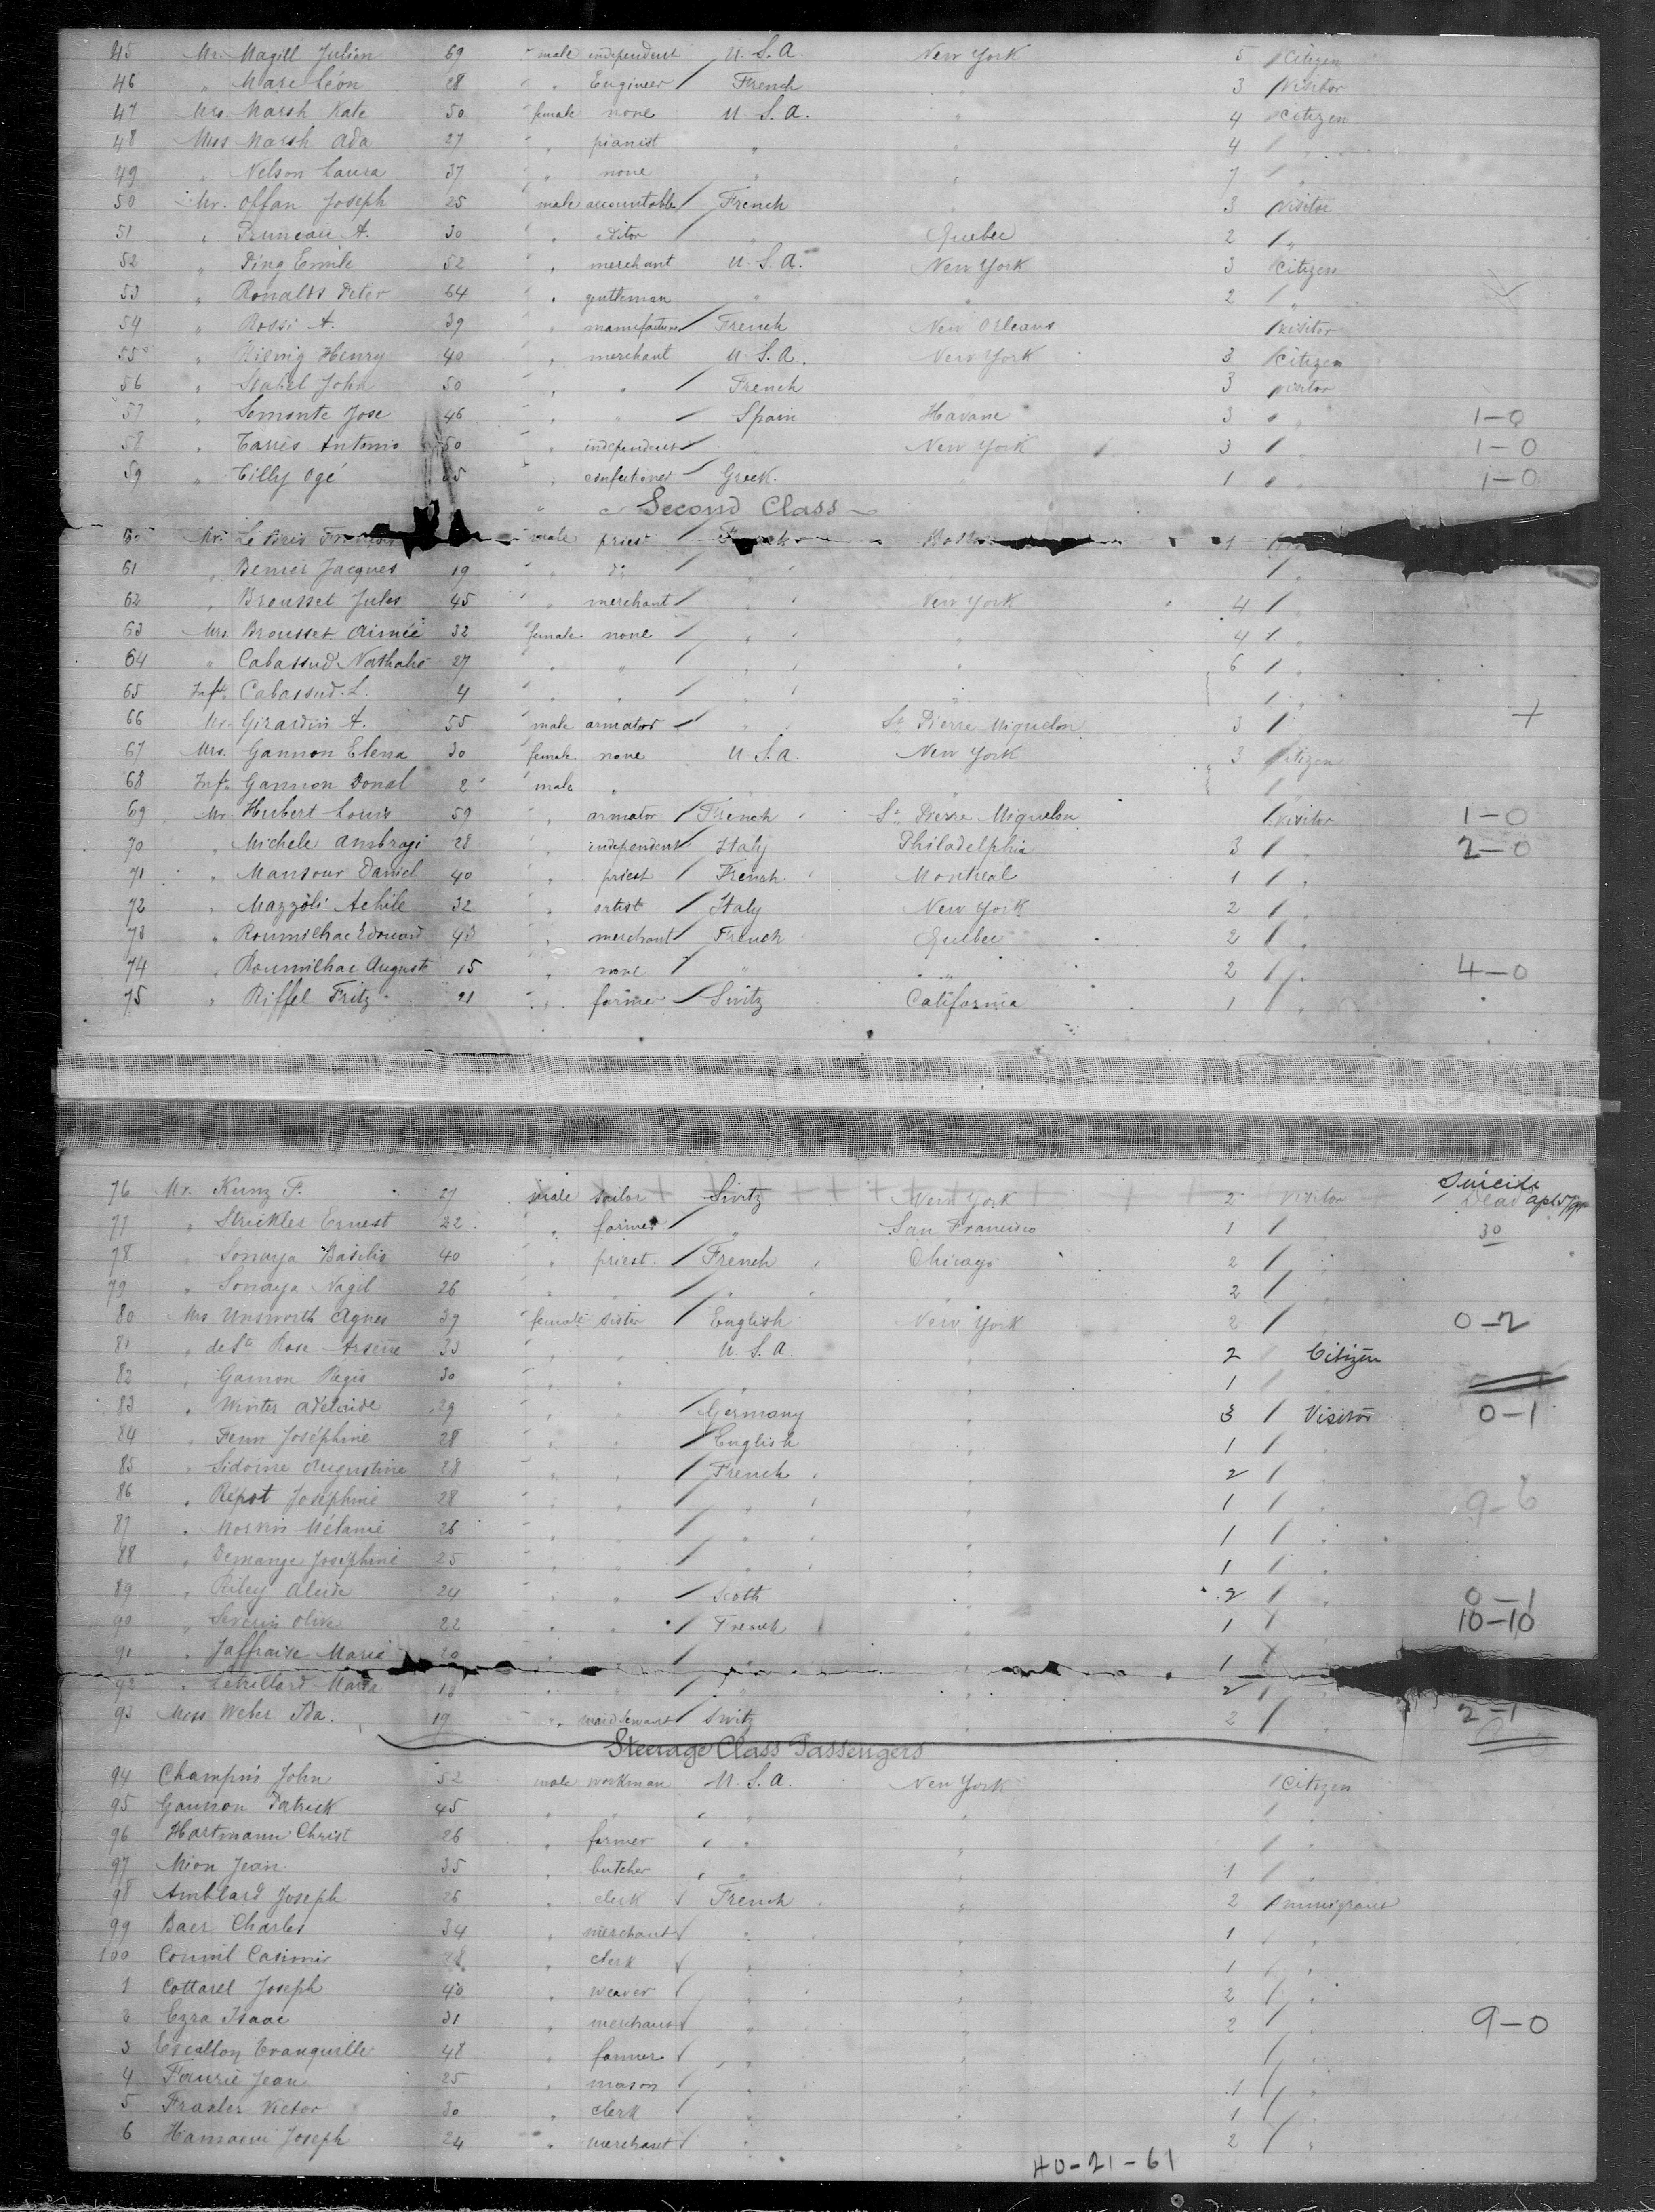 45 Mr. Magill Julien 69 male independent U.S.A. New York 5 Citizen
46 " Marc Léon 28 " Engineer French 3 Visitor
47 Mrs. Marsh Kate 50 female none U.S.A. " 4 Citizen
48 Miss Marsh Ada 27 " pianist " " 4 "
49 " Nelson Laura 37 " none " " 7 "
50 Mr. Offan Joseph 25 male accountable French 3 Visitor
51 " Pruneau A. 30 " editor Quebec 2 "
52 " Ping Emile 52 " merchant U.S.A. New York 3 Citizen
53 " Ronalds Peter 64 " gentleman " " 2 "
54 " Rossi A. 39 " manufacturer French New Orleans Visitor
55 " Henry 40 " merchant U.S.A. New York 3 Citizen
56 " John 50 " " French 3 Visitor
57 " Jose 46 " " Spain Havane 3 " 1-0
58 " Tarrés Antonio 50 " independent New York 3 " 1-0
59 " Tilly Ogé 35 " confectioner Greek " 1 " 1-0
Second Class
60 Mr. male priest French 1
61 " Jacques 19 " do " "
62 " Brousset Jules 45 " merchant " New York 4 "
63 Mrs. Brousset Aimée 32 female none " " 4 "
64 " Cabassud Nathalie 27 " " " " 6 "
65 Inft. Cabassud L. 4 " " " " "
66 Mr. Girardin A. 55 male armator " St. Pierre Miquelon 3 +
67 Mrs. Gannon Elena 30 female none U.S.A. New York 3 Citizen
68 Inft. Gannon Donal 2 male " " " "
69 Mr. Hubert Louis 59 " armator French St. Pierre Miquelon Visitor 1-0
70 " Michele Ambrogi 28 " independent Italy Philadelphia 3 " 2-0
71 " Mansour Daniel 40 " priest French Montreal 1 "
72 " Mazzoli Achile 32 " artist Italy New York 2 "
73 " Roumilhac Edouard 43 " merchant French Quebec 2 "
74 " Roumilhac Auguste 15 " none " " 2 " 4-0
75 " Riffel Fritz 21 " farmer Switz California 1 "
76 Mr. Kunz P. 27 male sailor Switz New York 2 Visitor Suicide Dead
77 " Strickler Ernest 22 " farmer " San Francisco 1 " 30
78 " Sonaya Basilis 40 " priest French Chicago 2 "
79 " Sonaya Nagil 26 " " " " 2 "
80 Mrs Unsworth Agnes 39 female sister English New York 2 " 0-2
81 " de Ste Rose Arsène 33 " " U.S.A. " 2 Citizen
82 " Gannon Régis 30 " " " " 1 "
83 " Winter Adelaide 29 " " Germany " 3 Visitor 0-1
84 " Fenn Joséphine 28 " " English " 1 "
85 " Sidoine Augustine 28 " " French " 2 "
86 " Répot Joséphine 28 " " " " 1 " 9-6
87 " Mélanie 26 " " " " 1 "
88 " Demange Joséphine 25 " " " " 1 "
89 " Riley 24 " " Scoth " 2 " 0-1
90 " Séverin Olive 22 " " French " 1 " 10-10
91 " Jaffraise Maria 20 " " " 1
92 " Letrillard Maria 18 " " " 2
93 Miss Weber Ida. 19 " Switz " 2 " 2-1
Steerage Class Passengers
94 John 52 male workman U.S.A. New York Citizen
95 Gannon Patrick 45 " " " " "
96 Hartmann Christ 26 " farmer " " "
97 Mion Jean 35 " butcher " " 1 "
98 Amblard Joseph 26 " clerk French " 2 Immigrant
99 Baer Charles 34 " merchant " " 1 "
100 Casimir 28 " clerk " " 1 "
1 Cottarel Joseph 40 " weaver " " 2 "
2 Ezra Isaac 31 " merchant " " 2 " 9-0
3 Escallon Tranquille 48 " farmer " " "
4 Faurie Jean 25 " mason " " 1 "
5 Victor 30 " clerk " " 1 "
6 Joseph 24 " merchant " " 2 "
40-21-61